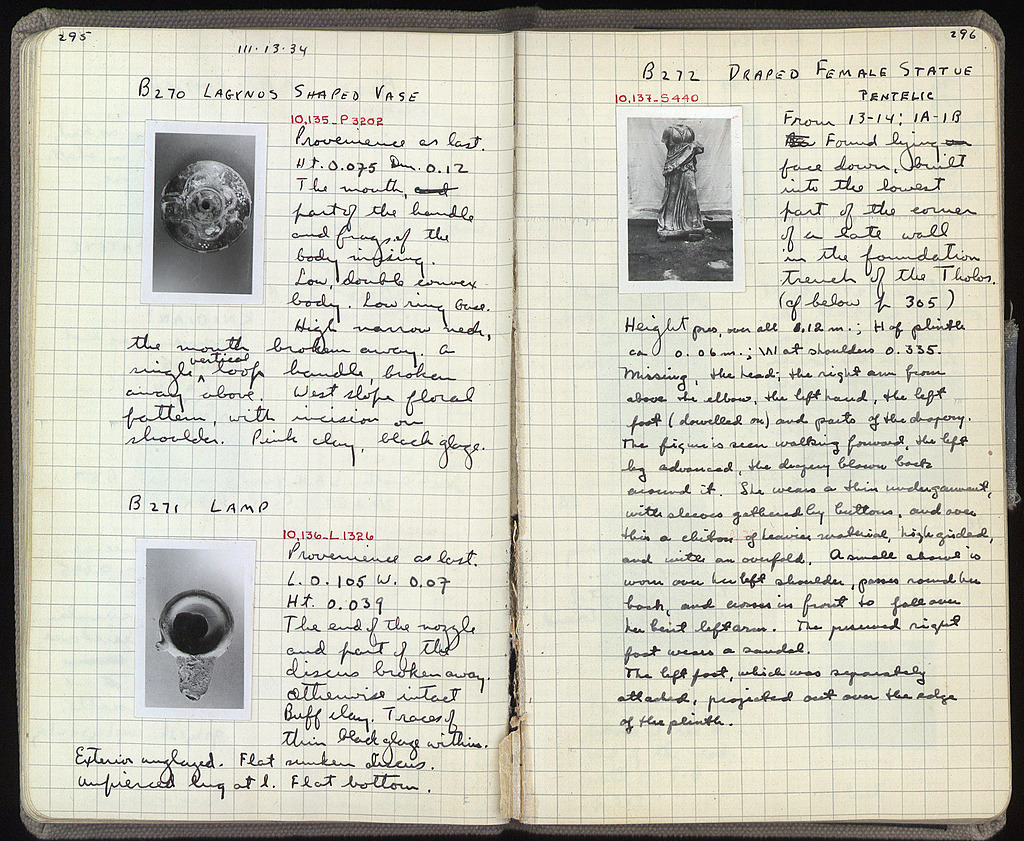 295
III·13·34
B270 LAGYNOS SHAPED VASE
10,135-P3202
Provenience as last.
Ht. 0.075 Dm. 0.12
The mouth, and
part of the handle
and frags. of the
body missing.
Low, double convex
body. Low ring base.
High narrow neck,
the mouth broken away. A
single vertical loop handle, broken
away above. West slope floral
pattern, with incision on
shoulder. Pink clay, black glaze.
B271 LAMP
10,136-L1326
Provenience as last.
L. 0.105 W. 0.07
Ht. 0.039
The end of the nozzle
and part of the
discus broken away.
Otherwise intact
Buff clay. Traces of
thin black glaze within.
Exterior unglazed. Flat sunken discus.
Unpierced lug at l. Flat bottom.
296
B272 DRAPED FEMALE STATUE
PENTELIC
10,137-S440
From 13-14: IA-IB
Found lying on
face down, built
into the lowest
part of the corner
of a late wall
in the foundation
trench of the Tholos.
(cf below p 305)
Height pres, over all 1.12 m.; H of plinth
ca 0.06 m.; W at shoulders 0.335.
Missing, the head; the right arm from
above the elbow, the left hand, the left
foot (dowelled on) and parts of the drapery.
The figure is seen walking forward, the left
leg advanced, the drapery blown back
around it. She wears a thin undergarment,
with sleeves gathered by buttons, and over
this a chiton of heavier material, high girded,
and with an overfold. A small shawl is
worn over her left shoulder, passes round her
back, and crosses in front to fall over
her bent left arm. The preserved right
foot wears a sandal.
The left foot, which was separately
attached, projected out over the edge
of the plinth.